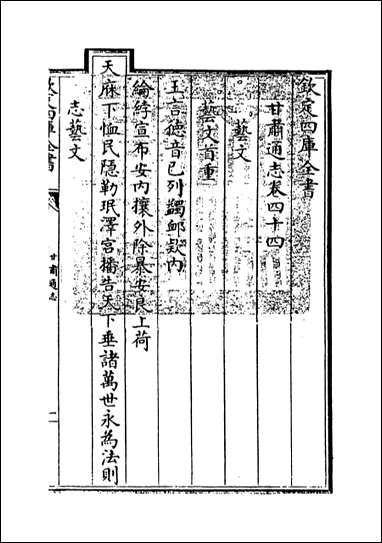 欽定四庫全書
甘肅通志卷四十四
藝文
藝文首重
王言德音已列蠲卹欵内
綸綍宣布安内攘外除暴安良上荷
天庥下恤民隱勒珉澤宫播告天下垂諸萬世永為法則
志藝文
欽定四庫全書
甘肅通志
一